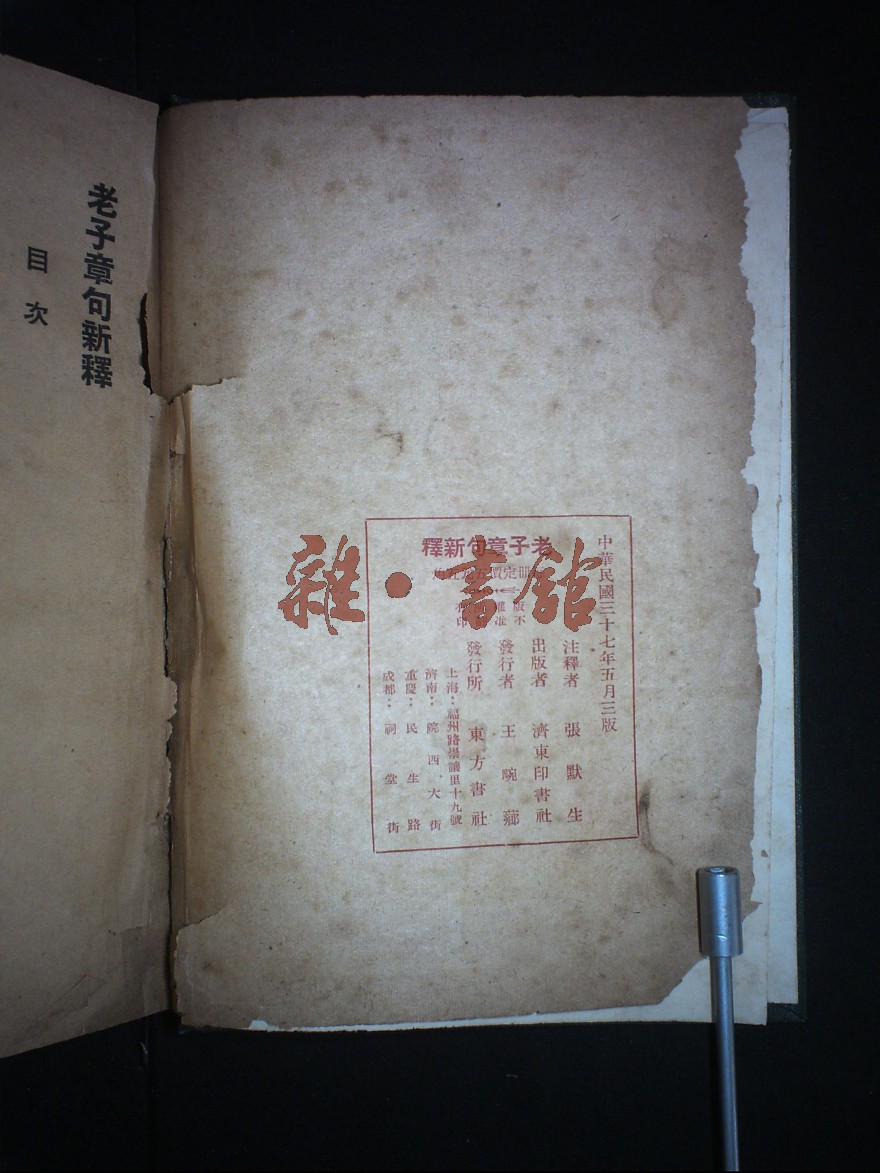 老子章句新釋
目次
中華民國三十七年五月三版
老子章句新釋
冊定價
版不
准
印
注釋者 張默生
出版者 濟東印書社
發行者 王畹薌
發行所 東方書社
上海：福州路崇讓里十九號
濟南：院西大街
重慶：民生路
成都：祠堂街
雜·書館